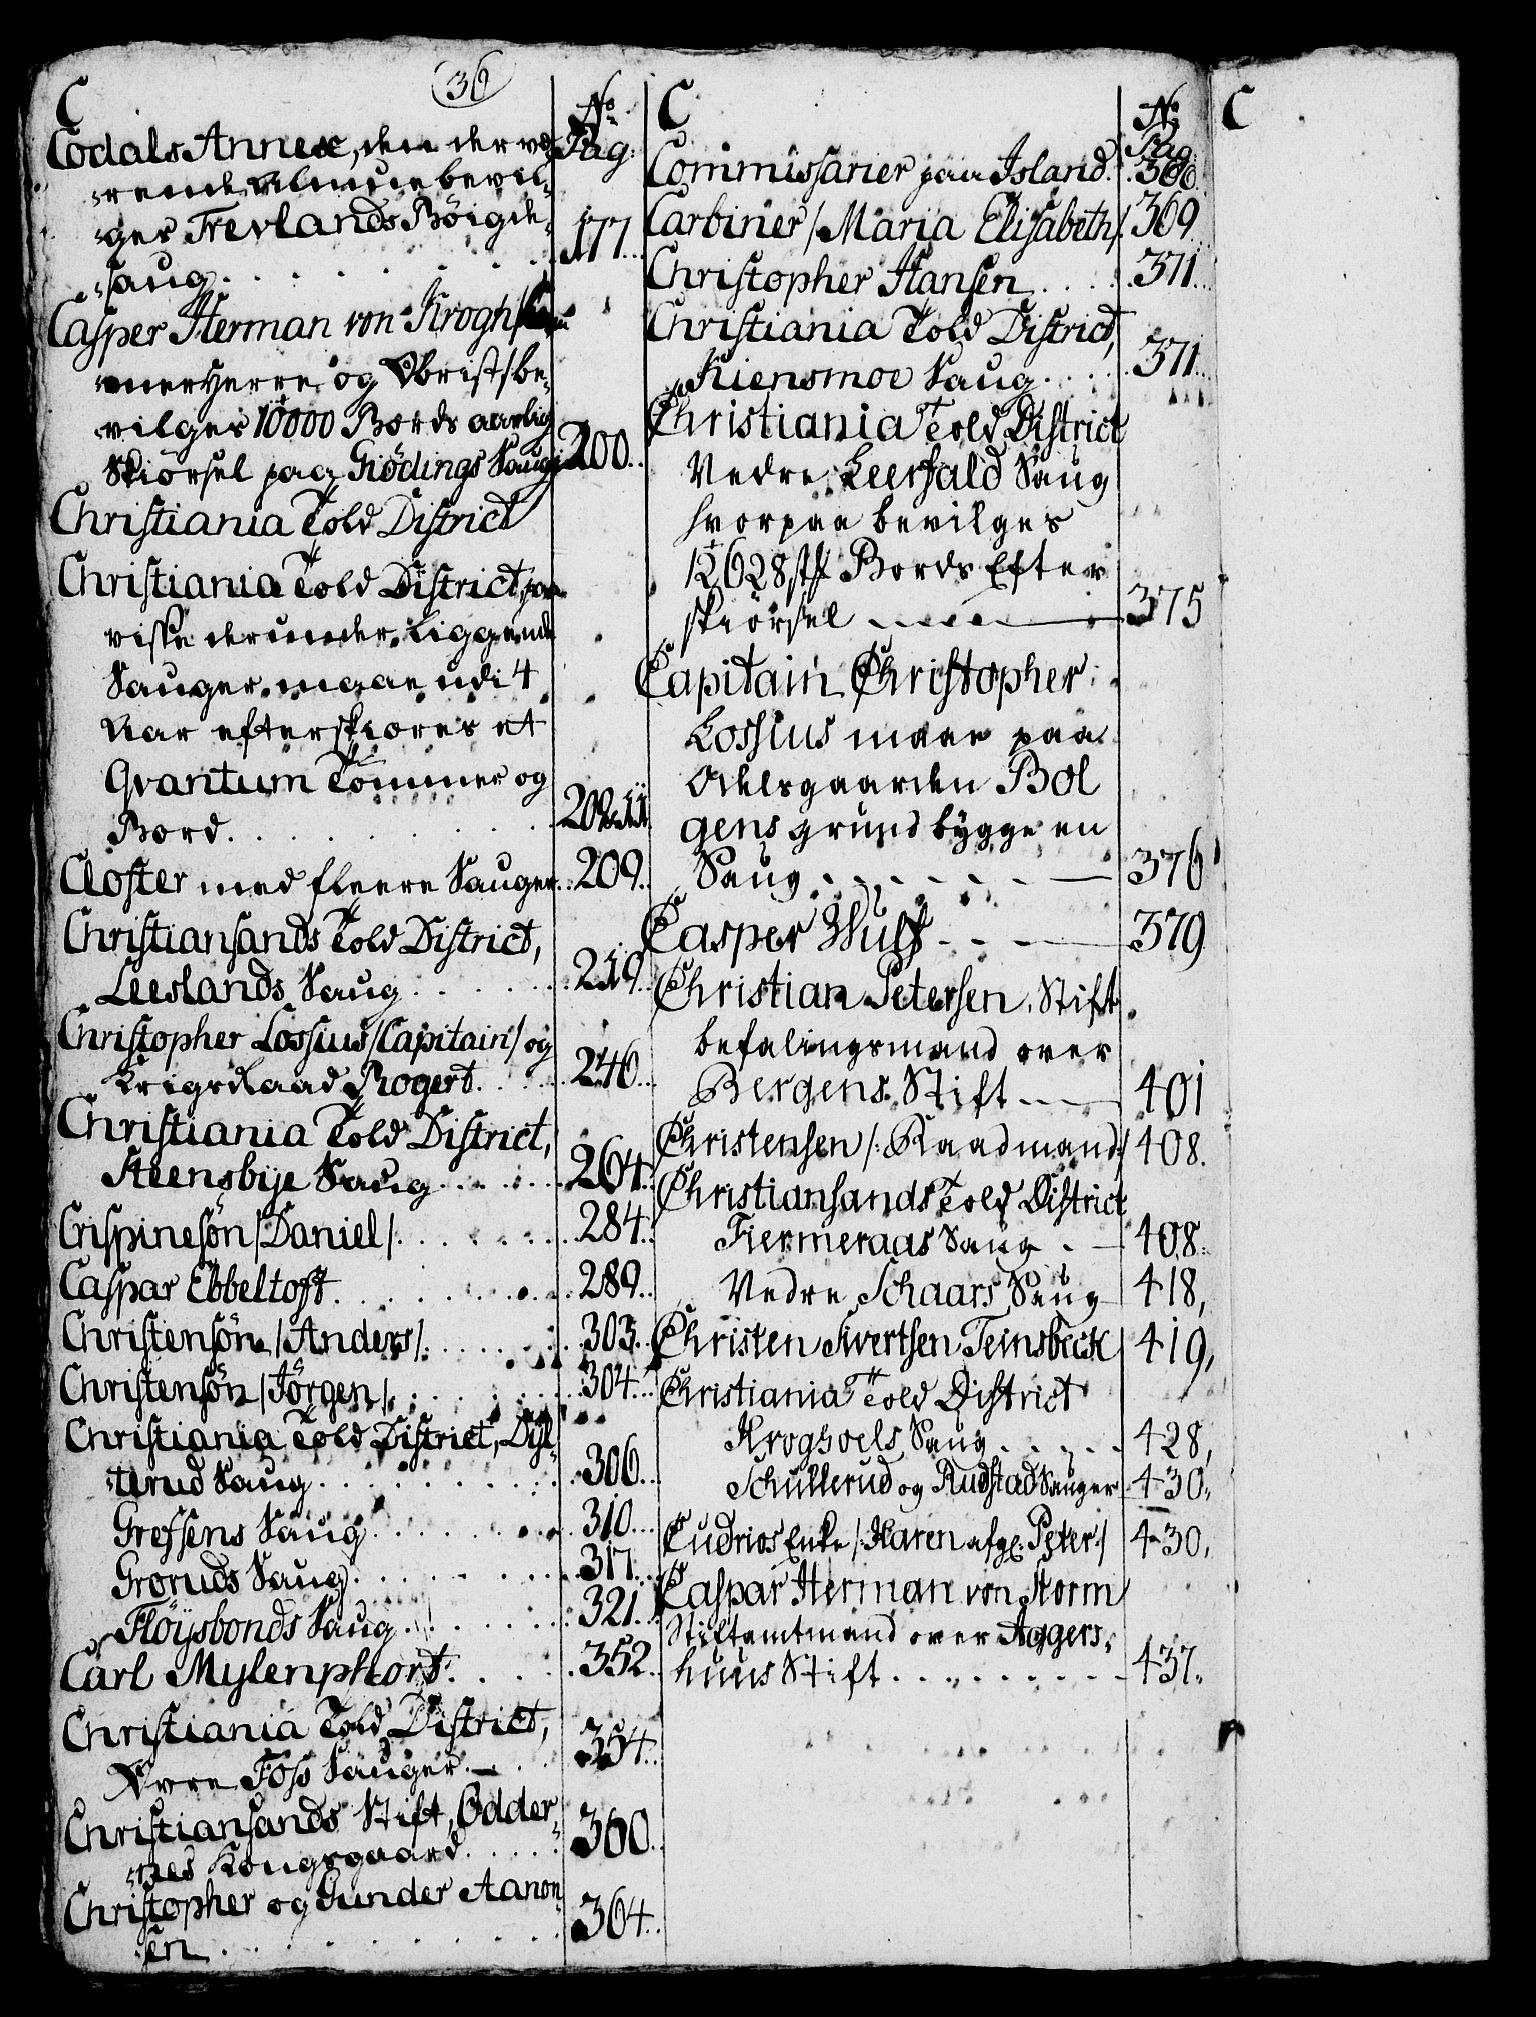 36
C
No
Pag:
Codals Annex, den der væ-
rende Almue bevil-
ges Trevlands Böigde
saug . . . 177.
Casper Herman von Krogh/Cam
merHerre og Obrist/be-
vilges 10000 Bords aarlig
Skiörsel paa Giödings Saug 200.
Christiania Told District
Christiania Told District, paa
visse derunder liggende
Sauger maae udi 4
Aar efterskiæres et
Qvantum Tömmer og
Bord. . . .
Closter med fleere Sauger. 209.
Christiansands Told District,
Leeslands Saug . . . 219.
Christopher Lossius/Capitain/og
KrigsRaad Rogert. . . 246.
Christiania Told District,
Steensbije Saug . . . 264.
Crispinesön/Daniel/. . . 284.
Caspar Ebbeltoft. . . 289.
Christensön/Anders/. . . 303.
Christensön/Jörgen/. . . 304.
Christiania Told District, Dijl-
terud Saug. . . 306.
Grefsens Saug. . . 310.
Groruds Saug. . . 317.
Flöijsbonds Saug. . . 321.
Carl Mylenphort. . . 352.
Christiania Told District,
Övre Foss Sauger. — 354.
Christiansands Stift, Odder-
nes Kongsgaard. . . 360.
Christopher og Gunder Aanon-
sen . . . 364.
C
No
Pag:
Commissarier paa Island. 366.
Carbiner/Maria Elisabeth/. 369
Christopher Hansen . . . 371.
Christiania Told District,
Kiensmoe Saug. . . 371.
Christiania Told District
Nedre Leerfald Saug
hvorpaa bevilges
12628 st Bords Efter
skiörsel — 375
Capitain Christopher
Lossius maae paa
Odelsgaarden Bol
gens grund bygge en
Saug - - - — 376
Casper Wulf - - — 379
Christian Petersen, Stift
befalingsmand over
Bergens Stift — 401
Christensen/:Raadmand:/ 408.
Christiansands Told District
Fiermeraas Saug . — 408.
Nedre Schaars Saug 418,
Christen Sivertsen Teinsbeck 419,
Christiania Told District
Kroghoels Saug . . . 428,
Schullerud og Rudstad Sauger 430,
Cudrios Enke/:Karen afg: Peter:/ 430,
Caspar Herman von Storm
Stiftamtmand over Aggers-
huus Stift . . . 437.
C